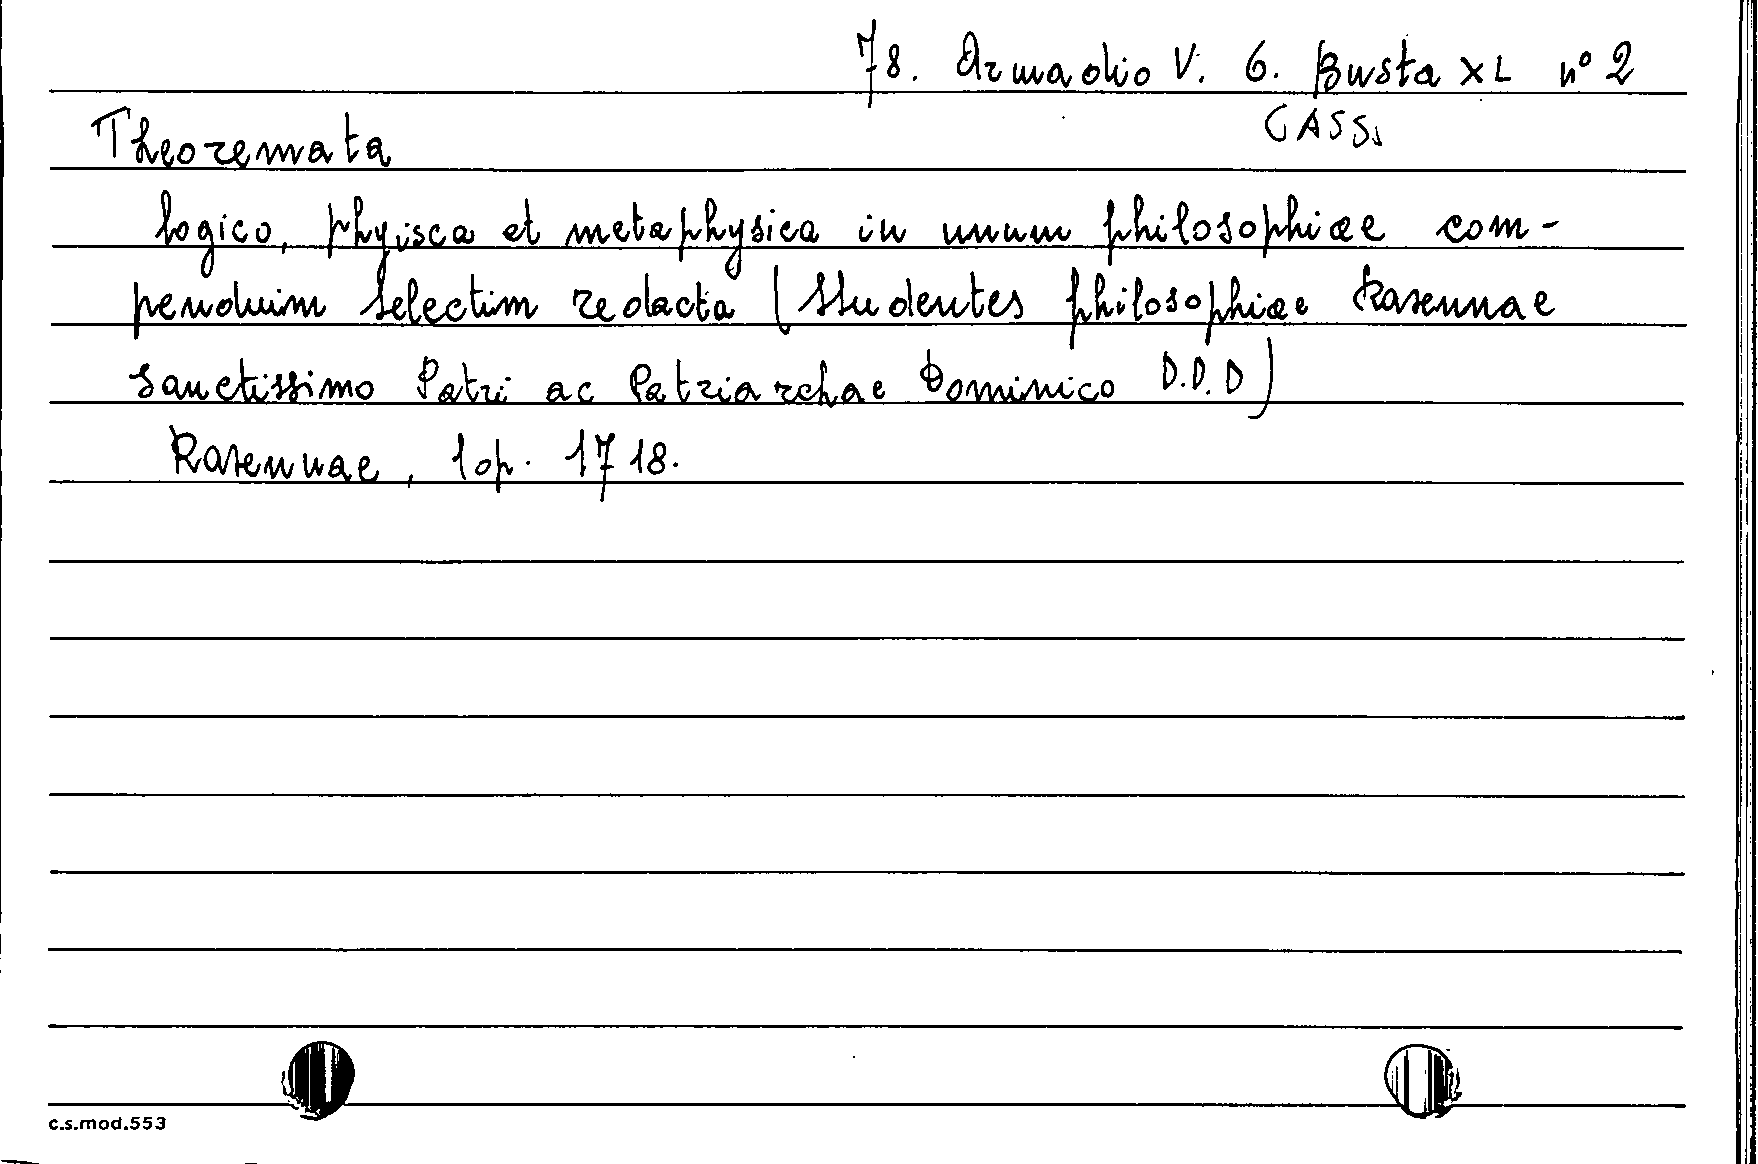 78. Armadio V. 6. Busta XL nº 2
CASS.
Theoremata
logico, phyisca et metaphysica in unum philosophiae com-
penduim selectim redacta (Studentes philosophiae Ravennae
sanctissimo Patri ac Patriarchae Dominico D.D.D)
Ravennae, 1718.
c.s.mod.553